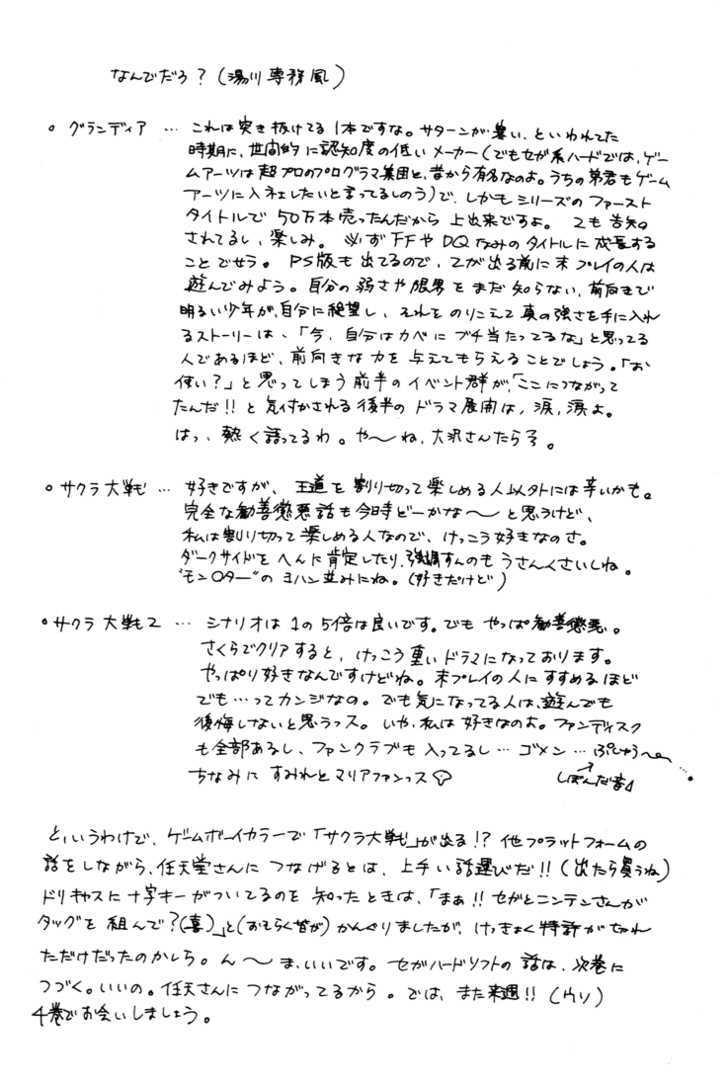 なんでだろ？(湯川専務風)
。グランディア … これは突き抜けてる1本ですな。サターンが暑い、といわれてた
時期に、世間的に認知度の低いメーカー(でもセガ系ハードでは、ゲー
ムアーツは超プロのプログラマ集団と、昔から有名なのよ。うちの弟君もゲーム
アーツに入社したいと言ってるしのう)で、しかもシリーズのファースト
タイトルで50万本売ったんだから上出来ですよ。2も告知
されてるし、楽しみ。必ずFFやDQなみのタイトルに成長する
ことでせう。PS版も出てるので、2が出る前に未プレイの人は
遊んでみよう。自分の弱さや限界をまだ知らない、前向きで
明るい少年が、自分に絶望し、それをのりこえて真の強さを手に入れ
るストーリーは、「今、自分はカベにブチ当たってるな」と思ってる
人であるほど、前向きな力を与えてもらえることでしょう。「お
使い？」と思ってしまう前半のイベント群が、「ここにつながって
たんだ!!と気付かされる後半のドラマ展開は、涙、涙よ。
はっ、熱く語ってるわ。や〜ね、大沢さんたら子。
。サクラ大戦 … 好きですが、王道を割り切って楽しめる人以外には辛いかも。
完全な勧善懲悪話も今時どーかな〜と思うけど、
私は割り切って楽しめる人なので、けっこう好きなのさ。
ダークサイドをへんに肯定したり、強調すんのもうさんくさいしね。
"モン〇ター"のヨハン並みにね。(好きだけど)
。サクラ大戦2 … シナリオは1の5倍は良いです。でもやっぱ勧善懲悪。
さくらでクリアすると、けっこう重いドラマになっております。
やっぱり好きなんですけどね。未プレイの人にすすめるほど
でも…ってカンジなの。でも気になってる人は、遊んでも
後悔しないと思うっス。いや、私は好きなのよ。ファンディスク
も全部あるし、ファンクラブも入ってるし…ゴメン…ぷしゅう〜
ちなみにすみれとマリアファンっス♡
しぼんだ音
という​わけで、ゲームボーイカラーで「サクラ大戦」が出る!?他プラットフォームの
話をしながら、任天堂さんにつなげるとは、上手い話運びだ!!(出たら買うね)
ドリキャスに十字キーがついてるのを知ったときは、「まあ!!セガとニンテンさんが
タッグを組んで？(喜)」と(おそらく皆が)かんぐりましたが、けっきょく特許が切れ
ただけだったのかしら。ん〜ま、いいです。セガハードソフトの話は、次巻に
つづく。いいの。任天さんにつながってるから。では、また来週!!(ウソ)
4巻でお会いしましょう。